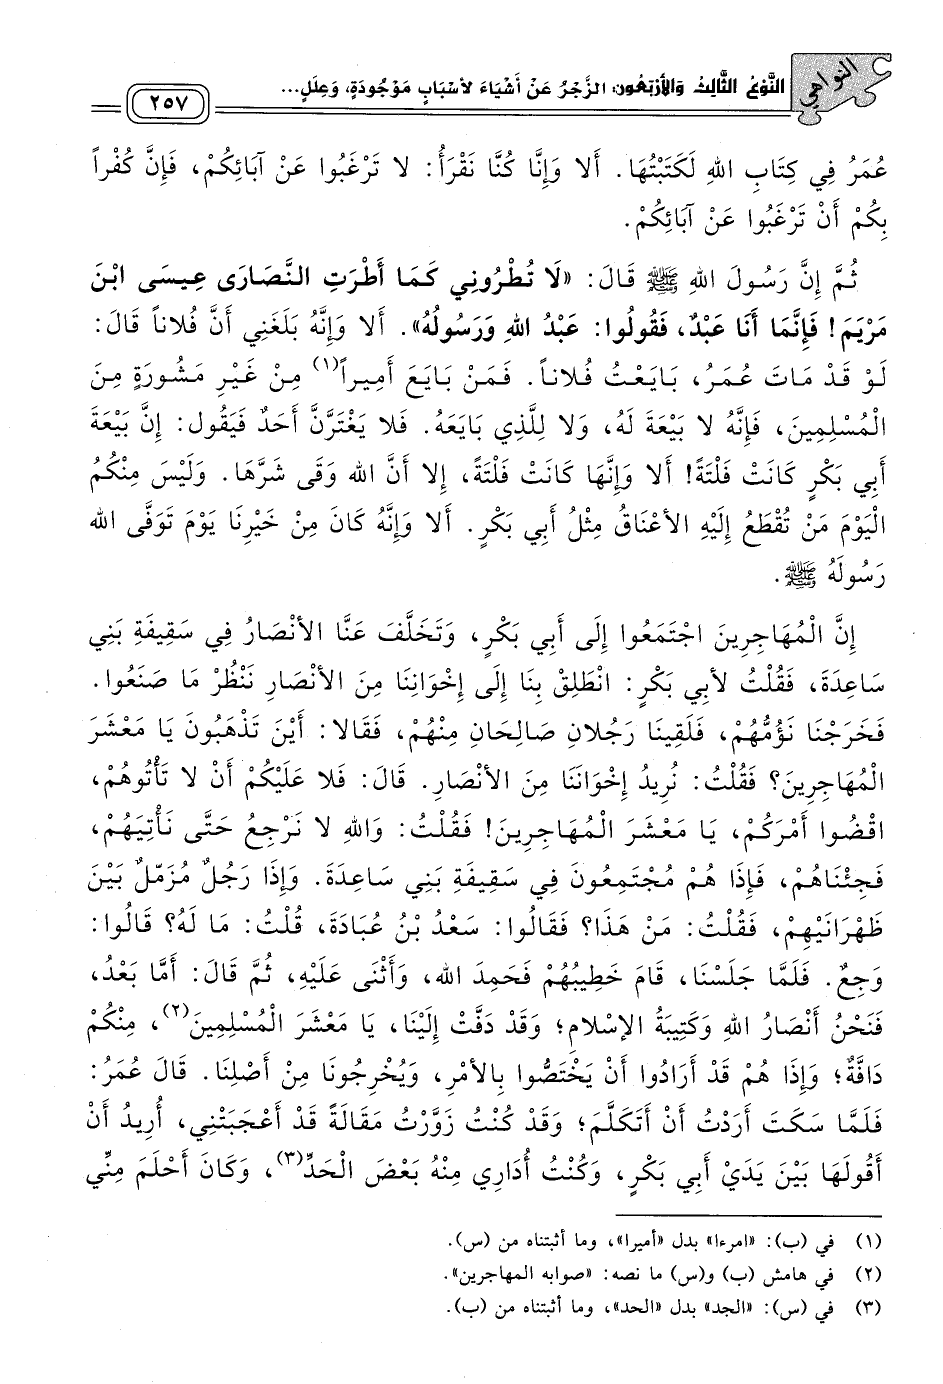 النواهي
النَّوْعُ الثَّالِثُ وَالأَرْبَعُونَ: الزَّجْرُ عَنْ أَشْيَاءَ لأَسْبَابٍ مَوْجُودَةٍ، وَعِلَلٍ...
٢٥٧
عُمَرُ فِي كِتَابِ اللهِ لَكَتَبْتُهَا. أَلا وَإِنَّا كُنَّا نَقْرَأُ: لا تَرْغَبُوا عَنْ آبَائِكُمْ، فَإِنَّ كُفْراً
بِكُمْ أَنْ تَرْغَبُوا عَنْ آبَائِكُمْ.
ثُمَّ إِنَّ رَسُولَ اللهِ ﷺ قَالَ: «لَا تُطْرُونِي كَمَا أَطْرَتِ النَّصَارَى عِيسَى ابْنَ
مَرْيَمَ! فَإِنَّمَا أَنَا عَبْدٌ، فَقُولُوا: عَبْدُ اللهِ وَرَسُولُهُ». أَلا وَإِنَّهُ بَلَغَنِي أَنَّ فُلاناً قَالَ:
لَوْ قَدْ مَاتَ عُمَرُ، بَايَعْتُ فُلاناً. فَمَنْ بَايَعَ أَمِيراً(١) مِنْ غَيْرِ مَشُورَةٍ مِنَ
الْمُسْلِمِينَ، فَإِنَّهُ لا بَيْعَةَ لَهُ، وَلا لِلَّذِي بَايَعَهُ. فَلا يَغْتَرَّنَّ أَحَدٌ فَيَقُول: إِنَّ بَيْعَةَ
أَبِي بَكْرٍ كَانَتْ فَلْتَةً! أَلا وَإِنَّهَا كَانَتْ فَلْتَةً، إِلا أَنَّ الله وَقَى شَرَّهَا. وَلَيْسَ مِنْكُمُ
الْيَوْمَ مَنْ تُقْطَعُ إِلَيْهِ الأَعْنَاقُ مِثْلُ أَبِي بَكْرٍ. أَلا وَإِنَّهُ كَانَ مِنْ خَيْرِنَا يَوْمَ تَوَفَّى الله
رَسُولَهُ ﷺ.
إِنَّ الْمُهَاجِرِينَ اجْتَمَعُوا إِلَى أَبِي بَكْرٍ، وَتَخَلَّفَ عَنَّا الأَنْصَارُ فِي سَقِيفَةِ بَنِي
سَاعِدَةَ، فَقُلْتُ لأَبِي بَكْرٍ: انْطَلِقْ بِنَا إِلَى إِخْوَانِنَا مِنَ الأَنْصَارِ نَنْظُرْ مَا صَنَعُوا.
فَخَرَجْنَا نَؤُمُّهُمْ، فَلَقِيَنَا رَجُلانِ صَالِحَانِ مِنْهُمْ، فَقَالا: أَيْنَ تَذْهَبُونَ يَا مَعْشَرَ
الْمُهَاجِرِينَ؟ فَقُلْتُ: نُرِيدُ إِخْوَانَنَا مِنَ الأَنْصَارِ. قَالَ: فَلا عَلَيْكُمْ أَنْ لا تَأْتُوهُمْ،
اقْضُوا أَمْرَكُمْ، يَا مَعْشَرَ الْمُهَاجِرِينَ! فَقُلْتُ: وَاللهِ لا نَرْجِعُ حَتَّى نَأْتِيَهُمْ،
فَجِئْنَاهُمْ، فَإِذَا هُمْ مُجْتَمِعُونَ فِي سَقِيفَةِ بَنِي سَاعِدَةَ. وَإِذَا رَجُلٌ مُزَمَّلٌ بَيْنَ
ظَهْرَانَيْهِمْ، فَقُلْتُ: مَنْ هَذَا؟ فَقَالُوا: سَعْدُ بْنُ عُبَادَةَ، قُلْتُ: مَا لَهُ؟ قَالُوا:
وَجِعٌ. فَلَمَّا جَلَسْنَا، قَامَ خَطِيبُهُمْ فَحَمِدَ الله، وَأَثْنَى عَلَيْهِ، ثُمَّ قَالَ: أَمَّا بَعْدُ،
فَنَحْنُ أَنْصَارُ اللهِ وَكَتِيبَةُ الإِسْلامِ؛ وَقَدْ دَفَّتْ إِلَيْنَا، يَا مَعْشَرَ الْمُسْلِمِينَ(٢)، مِنْكُمْ
دَافَّةٌ؛ وَإِذَا هُمْ قَدْ أَرَادُوا أَنْ يَخْتَصُّوا بِالأَمْرِ، وَيُخْرِجُونَا مِنْ أَصْلِنَا. قَالَ عُمَرُ:
فَلَمَّا سَكَتَ أَرَدْتُ أَنْ أَتَكَلَّمَ؛ وَقَدْ كُنْتُ زَوَّرْتُ مَقَالَةً قَدْ أَعْجَبَتْنِي، أُرِيدُ أَنْ
أَقُولَهَا بَيْنَ يَدَيْ أَبِي بَكْرٍ، وَكُنْتُ أُدَارِي مِنْهُ بَعْضَ الْحَدِّ(٣)، وَكَانَ أَحْلَمَ مِنِّي
(١) في (ب): «امرءا» بدل «أميرا»، وما أثبتناه من (س).
(٢) في هامش (ب) و(س) ما نصه: «صوابه المهاجرين».
(٣) في (س): «الجد» بدل «الحد»، وما أثبتناه من (ب).